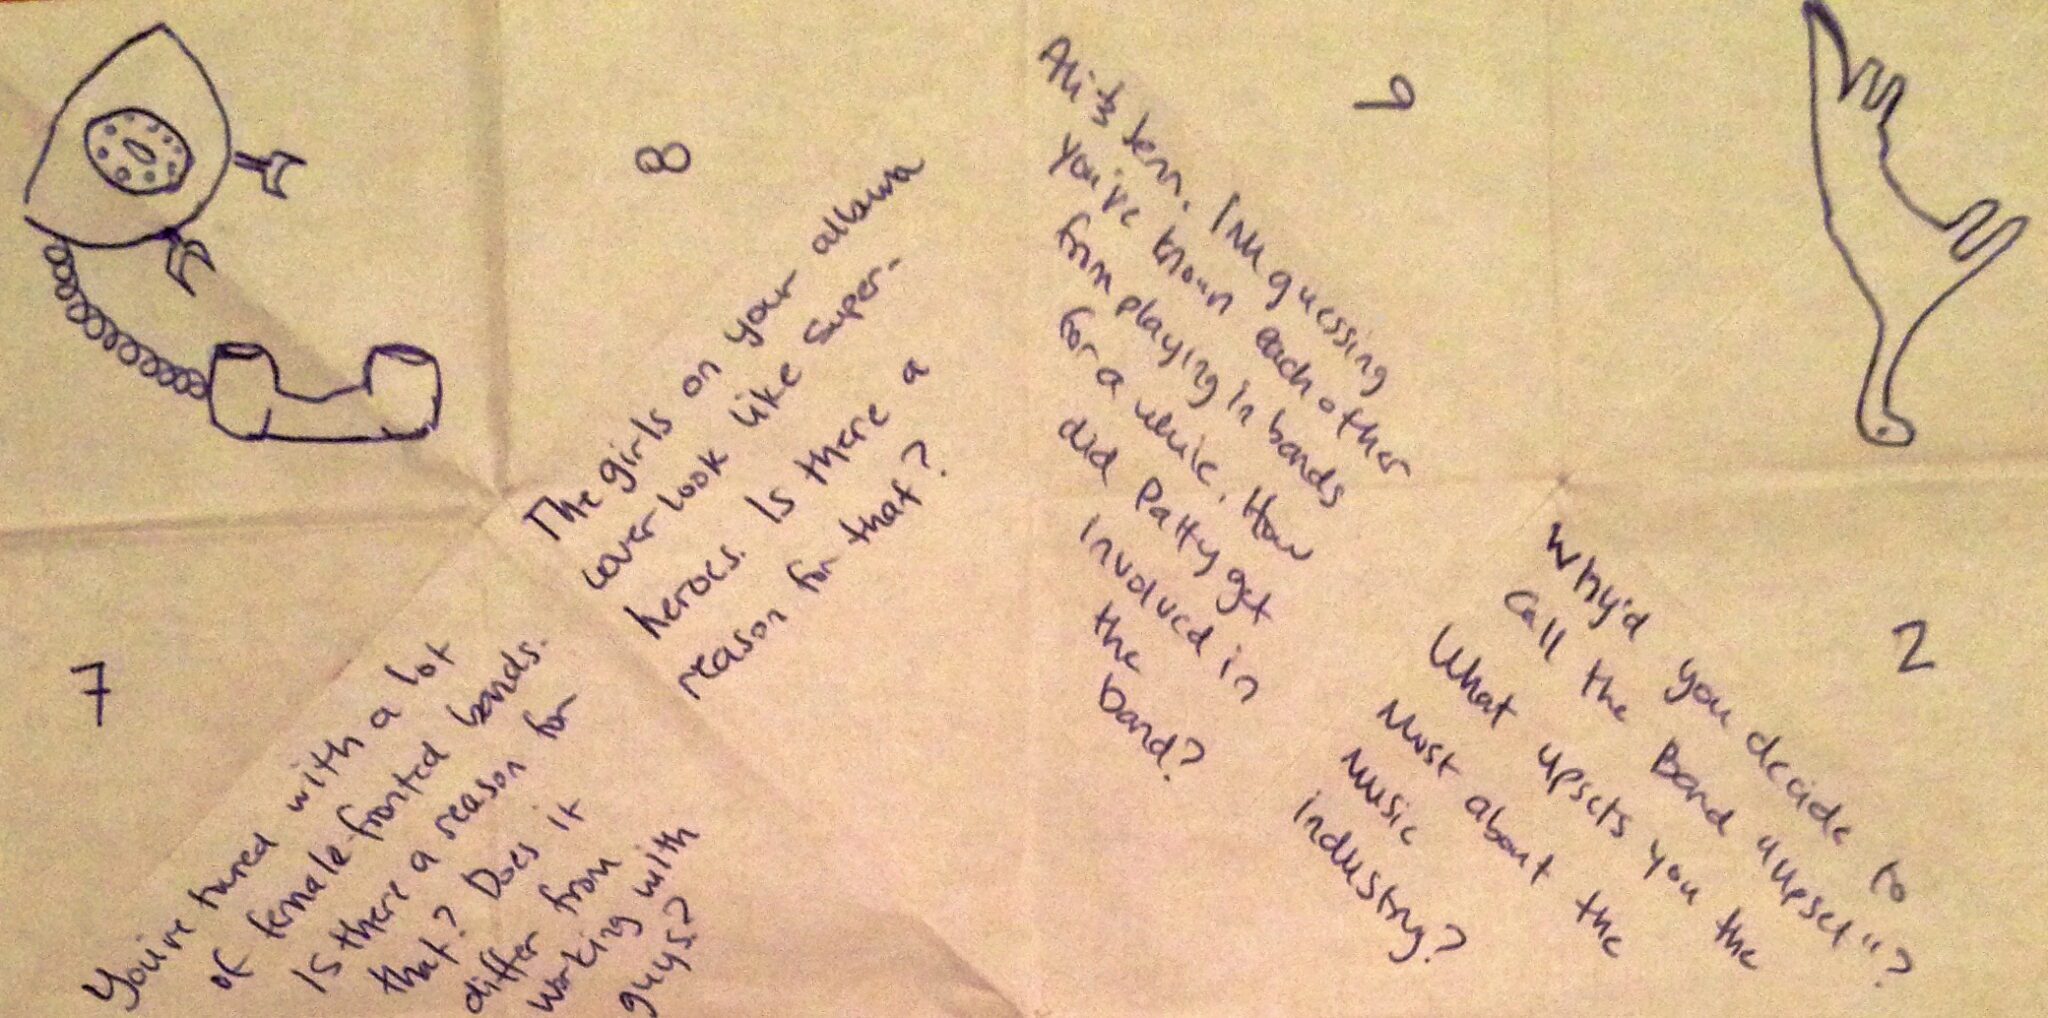 8
The girls on your album
cover look like super-
heroes. Is there a
reason for that?
9
Ali & Jenn. I'm guessing
you've known each other
from playing in bands
for a while. How
did Patty get
involved in
the
band?
7
You've tured with a lot
of female fronted bands.
Is there a reason for
that? Does it
differ from
working with
guys?
2
Why'd you decide to
call the band "upset"?
What upsets you the
most about the
music
industry?